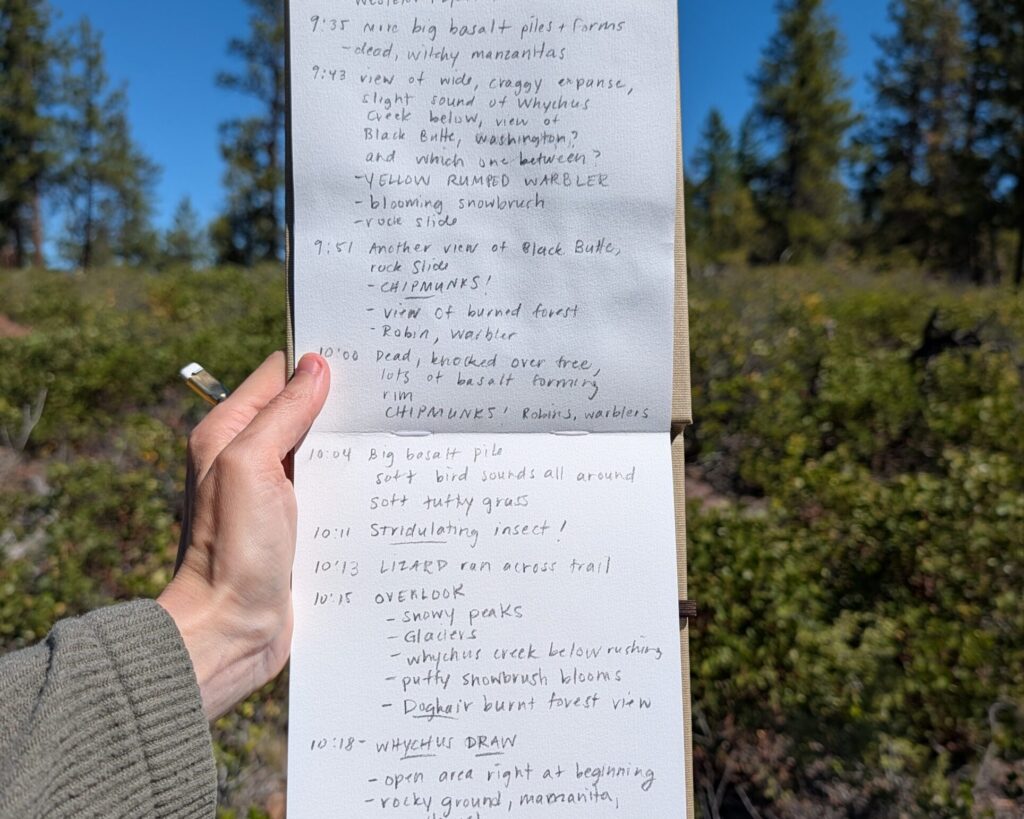 9:35 More big basalt piles + forms
- dead, witchy manzanitas
9:43 view of wide, craggy expanse,
slight sound of Whychus
Creek below, view of
Black Butte, Washington?
and which one between?
- YELLOW RUMPED WARBLER
- blooming snowbrush
- rock slide
9:51 Another view of Black Butte,
rock slide
- CHIPMUNKS!
- view of burned forest
- Robin, warbler
10:00 Dead, knocked over tree,
lots of basalt forming
rim
CHIPMUNKS! Robins, warblers
10:04 Big basalt pile
soft bird sounds all around
soft tufty grass
10:11 Stridulating insect!
10:13 LIZARD ran across trail
10:15 OVERLOOK
- snowy peaks
- Glaciers
- whychus creek below rushing
- puffy snowbrush blooms
- Doghair burnt forest view
10:18 - WHYCHUS DRAW
- open area right at beginning
- rocky ground, manzanita,